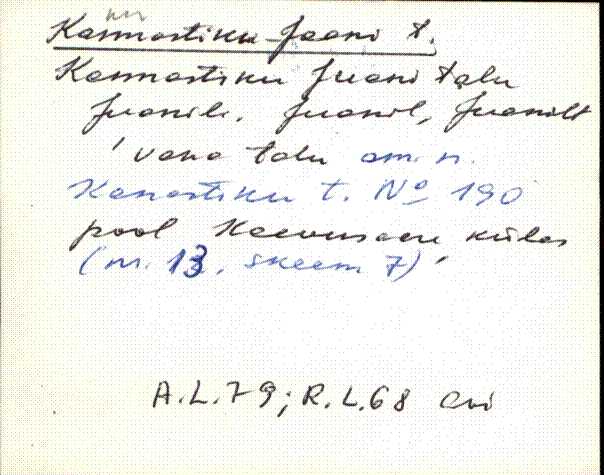 nn
Kannastiku-Jaani t.
Kannastiku Juani talu
Juanile, Juanil, Juanilt
'vana talu am. n.
Kanastiku t. No 190
pool Keevusaeu külas
(nr. 13, skeem 7)'
A.L.79; R.L.68 Evi